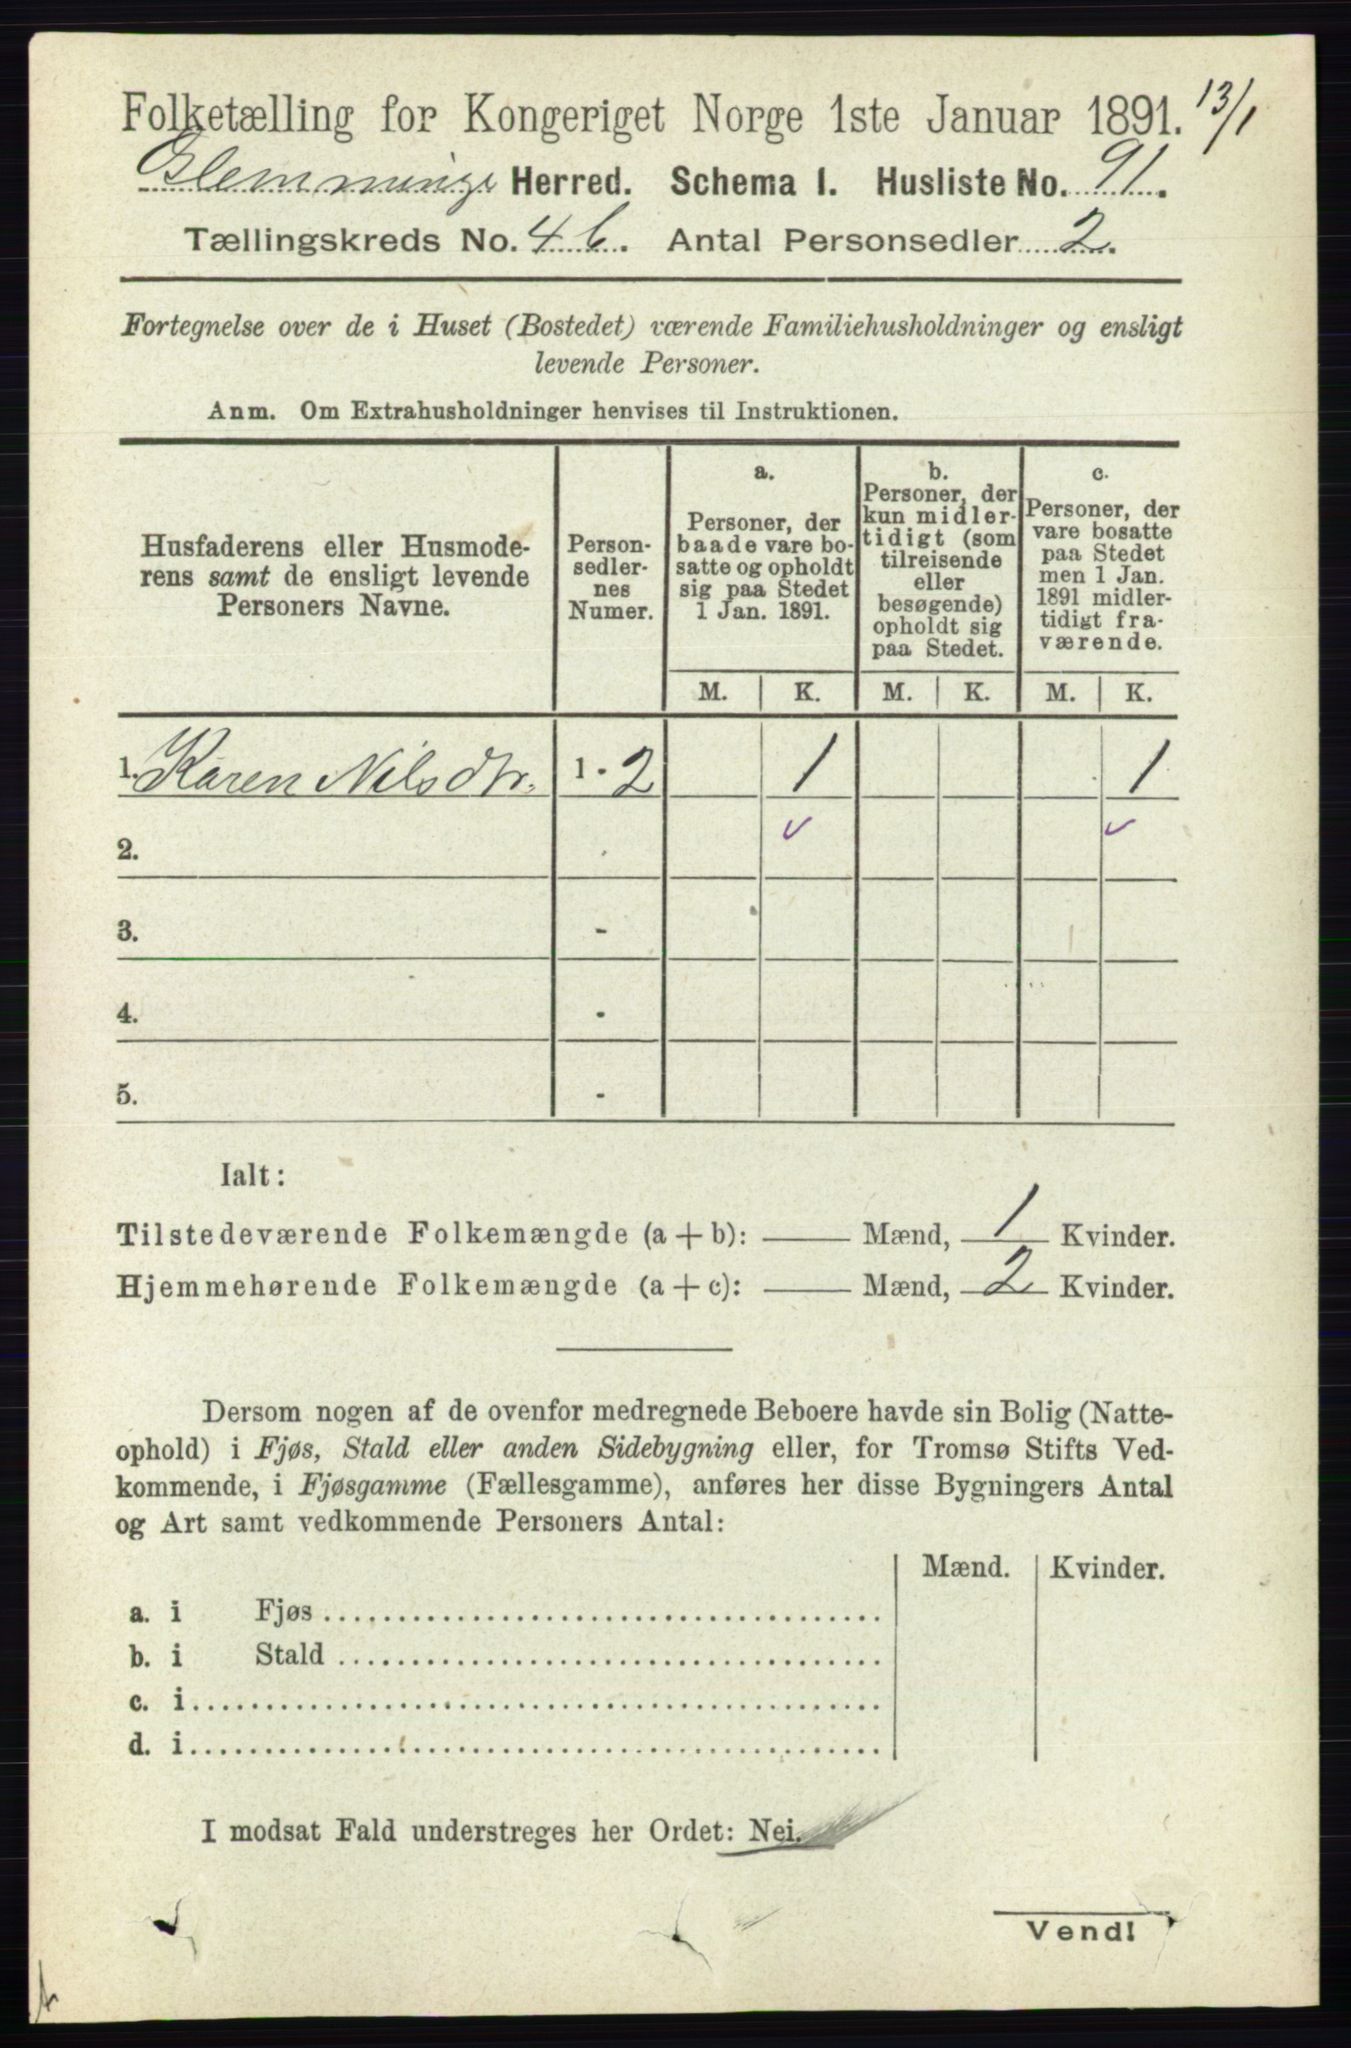 Folketælling for Kongeriget Norge 1ste Januar 1891. 13/1
Glemminge Herred. Schema I. Husliste No. 91.
Tællingskreds No. 4 b. Antal Personsedler 2.
Fortegnelse over de i Huset (Bostedet) værende Familiehusholdninger og ensligt
levende Personer.
Anm. Om Extrahusholdninger henvises til Instruktionen.
Husfaderens eller Husmode-
rens samt de ensligt levende
Personers Navne.
Person-
sedler-
nes
Numer.
a.
Personer, der
baade vare bo-
satte og opholdt
sig paa Stedet
1 Jan. 1891.
b.
Personer, der
kun midler-
tidigt (som
tilreisende
eller
besøgende)
opholdt sig
paa Stedet.
c.
Personer, der
vare bosatte
paa Stedet
men 1 Jan.
1891 midler-
tidigt fra-
værende.
M. K. M. K. M. K.
1. Karen Nilsdtr. 1 - 2 1 1
2.
3. -
4. -
5. -
Ialt:
Tilstedeværende Folkemængde (a + b): Mænd, 1 Kvinder.
Hjemmehørende Folkemængde (a + c): Mænd, 2 Kvinder.
Dersom nogen af de ovenfor medregnede Beboere havde sin Bolig (Natte-
ophold) i Fjøs, Stald eller anden Sidebygning eller, for Tromsø Stifts Ved-
kommende, i Fjøsgamme (Fællesgamme), anføres her disse Bygningers Antal
og Art samt vedkommende Personers Antal:
Mænd. Kvinder.
a. i Fjøs
b. i Stald
c. i
d. i
I modsat Fald understreges her Ordet: Nei.
Vend!